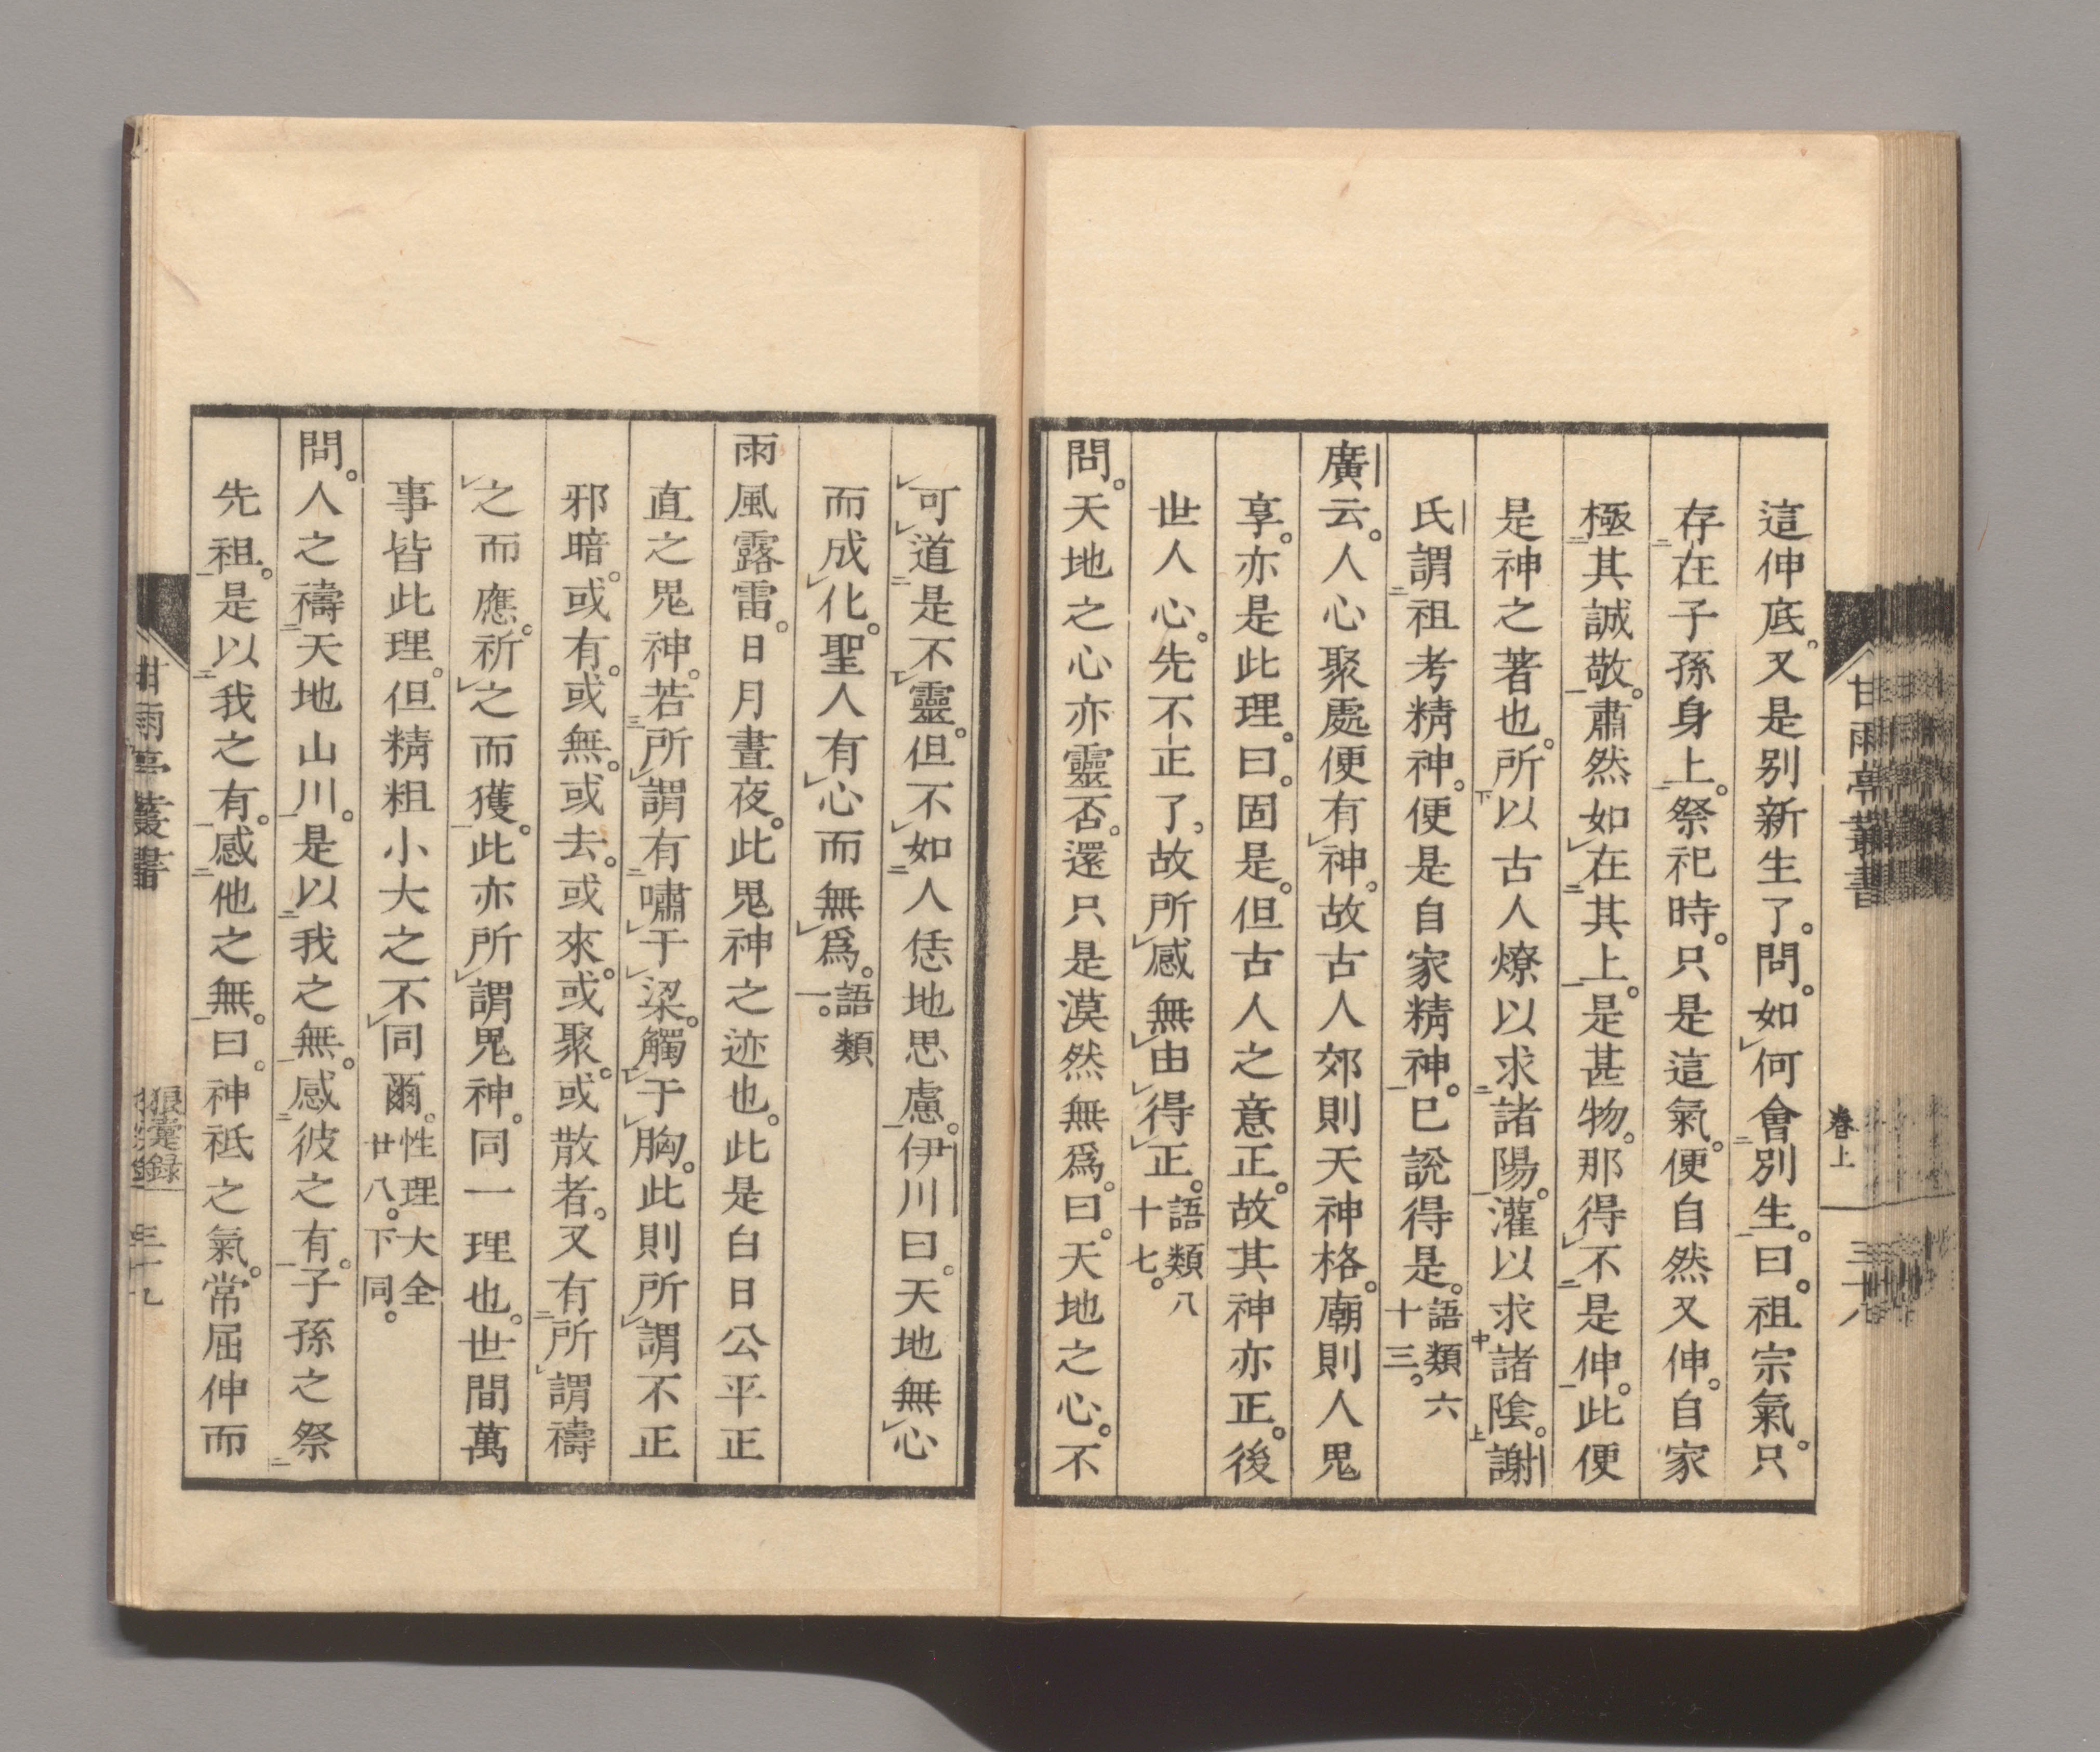 甘雨亭叢書
卷上
三十八
這伸底。又是別新生了。問。如何會別生。曰。祖宗氣。只
存在子孫身上。祭祀時。只是這氣。便自然又伸。自家
極其誠敬。肅然如在其上。是甚物。那得不是伸。此便
是神之著也。所以古人燎以求諸陽。灌以求諸陰。謝
氏謂祖考精神。便是自家精神。已說得是。語類六十三。
廣云。人心聚處便有神。故古人郊則天神格。廟則人鬼
享。亦是此理。曰。固是。但古人之意正。故其神亦正。後
世人心。先不正了。故所感無由得正。語類八十七。
問。天地之心亦靈否。還只是漠然無爲。曰。天地之心。不
可道是不靈。但不如人恁地思慮。伊川曰。天地無心
而成化。聖人有心而無爲。語類一。
雨風露雷。日月晝夜。此鬼神之迹也。此是白日公平正
直之鬼神。若所謂有嘯于梁。觸于胸。此則所謂不正
邪暗。或有。或無。或去。或來。或聚。或散者。又有所謂禱
之而應。祈之而獲。此亦所謂鬼神。同一理也。世間萬
事皆此理。但精粗小大之不同爾。性理大全廿八。下同。
問。人之禱天地山川。是以我之無。感彼之有。子孫之祭
先祖。是以我之有。感他之無。曰。神祇之氣。常屈伸而
甘雨亭叢書
狼疐錄
三十九